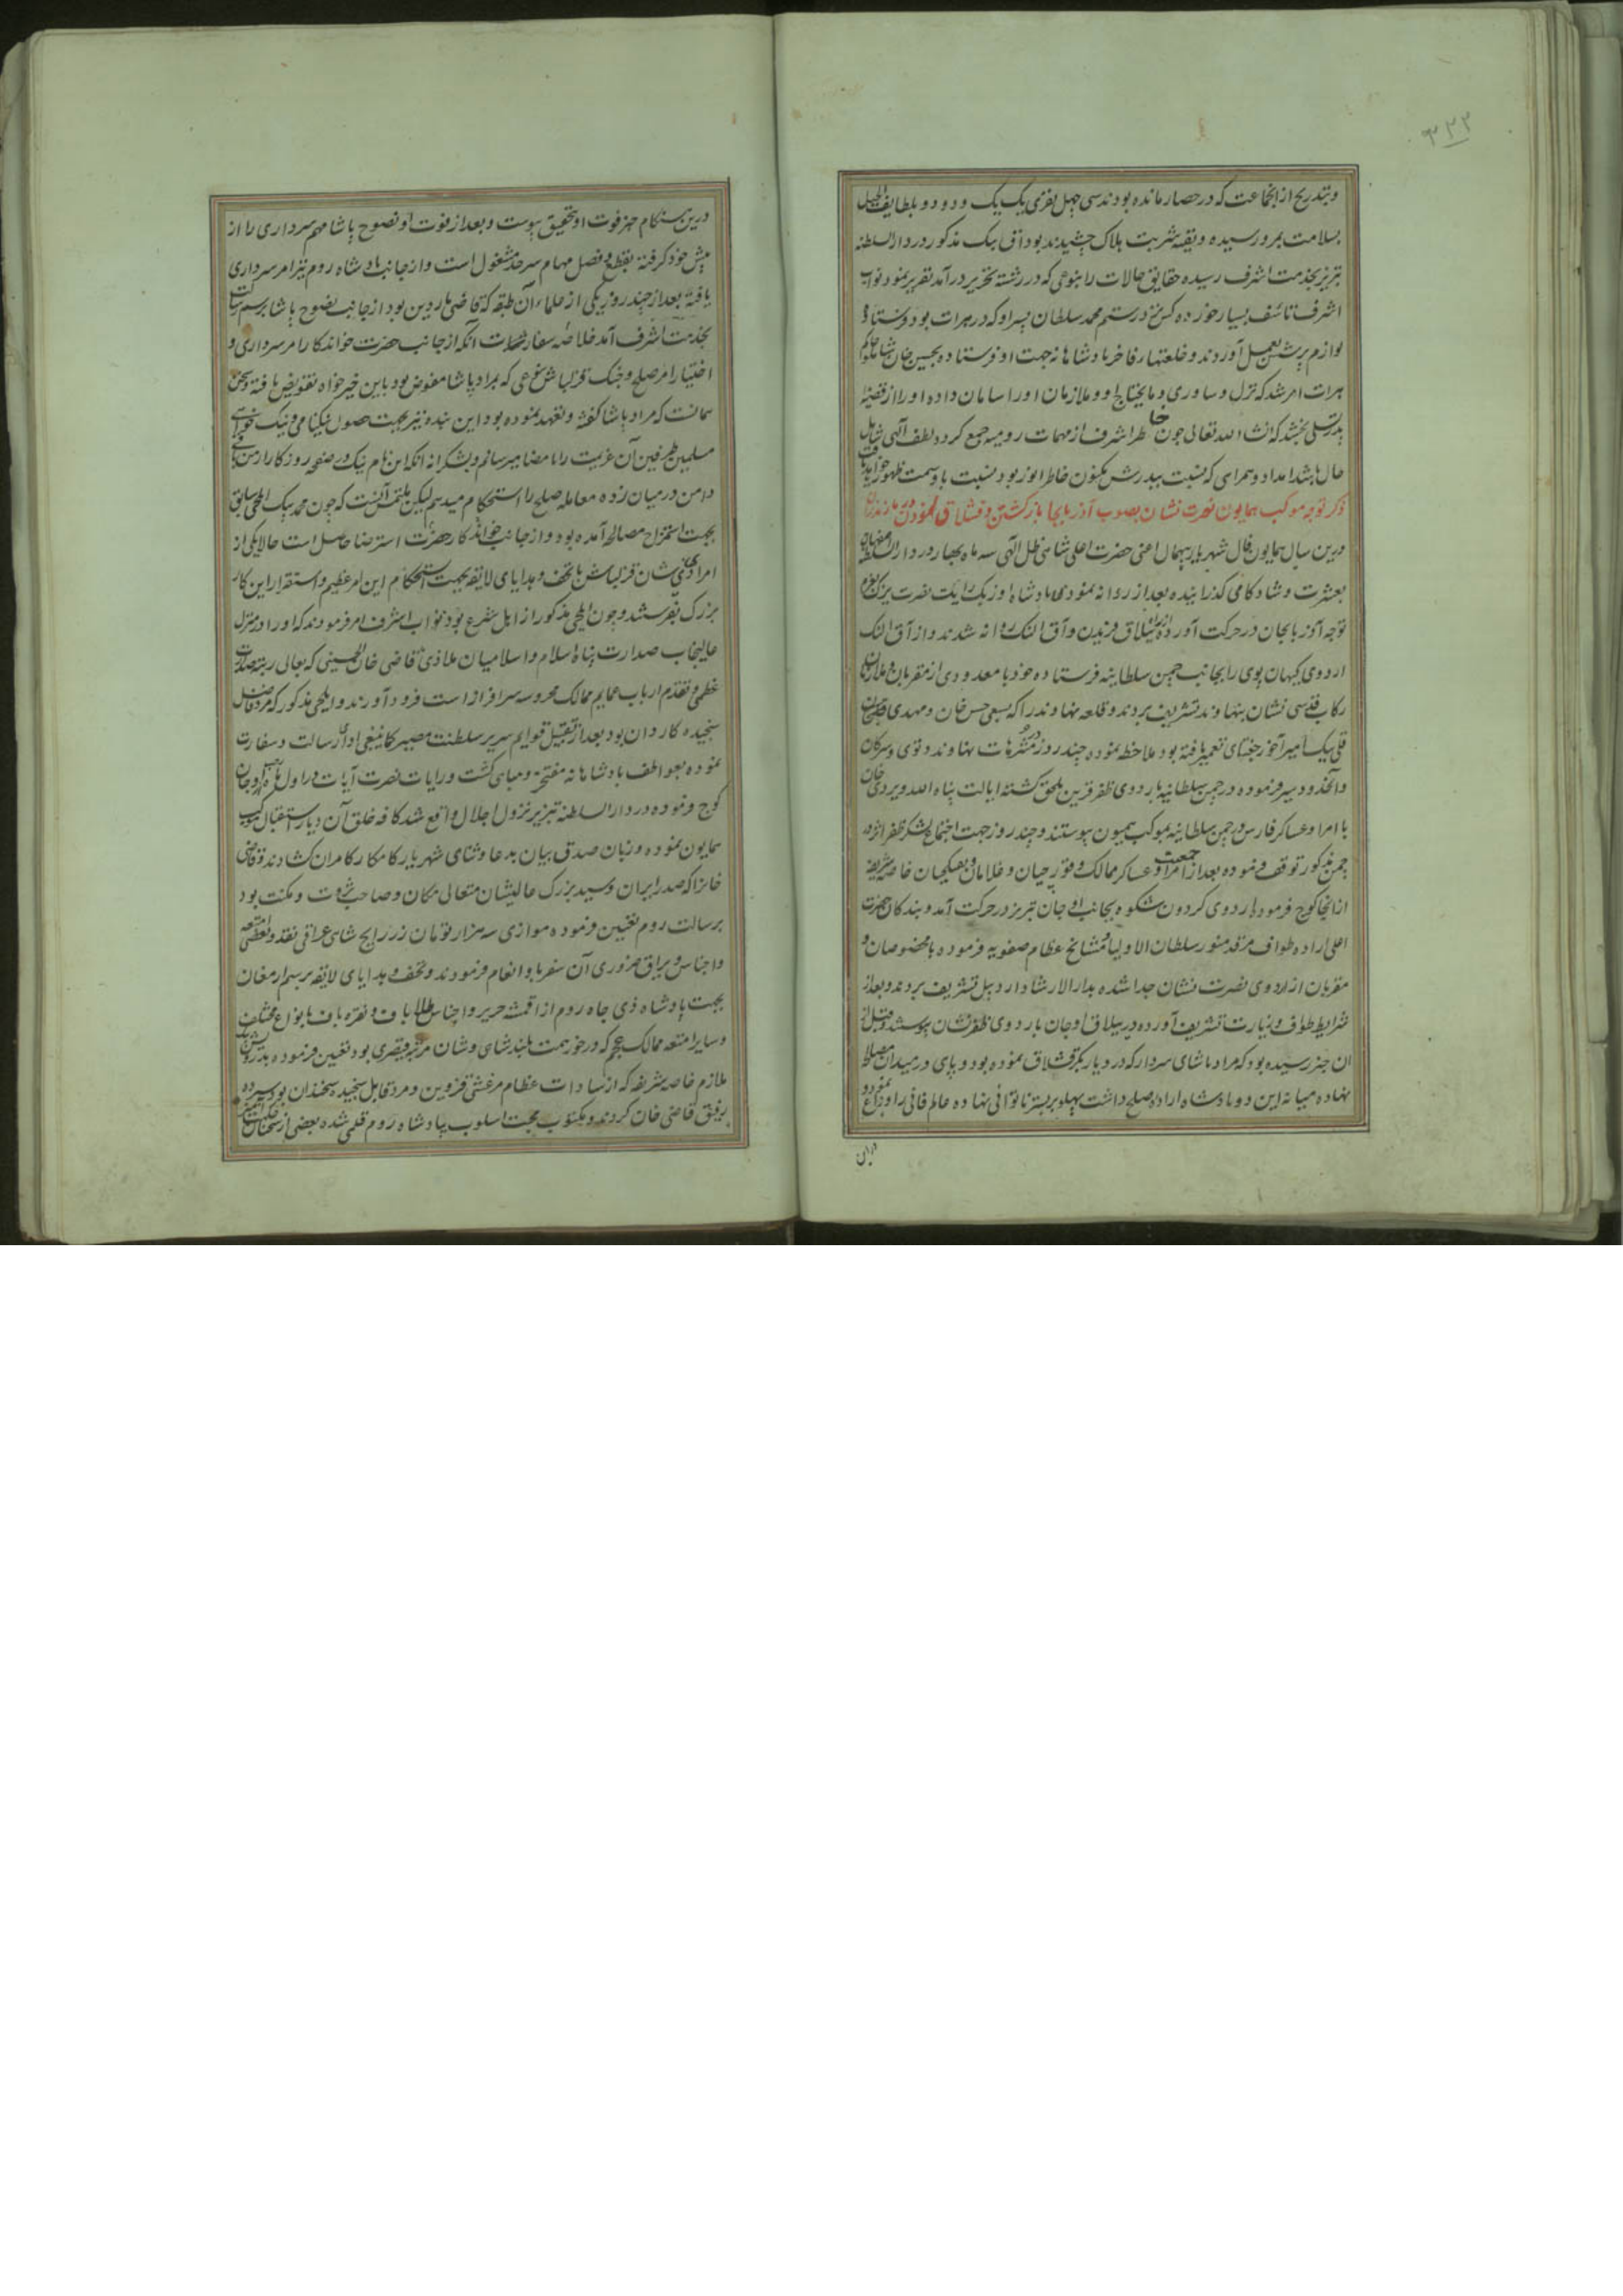 ۳۲۲
و بتدریج از انجماعت که در حصار مانده بودند سی چهل نفری یک یک و دو دو بلطایف الحیل
بسلامت بمرو رسیده و بقیه شربت هلاک چشیدند بوداق بیک مذکور در دار السلطنه
تبریز بخدمت اشرف رسیده حقایق حالات را بنوعی که در رشته تحریر در آمد تقریر نمود نواب
اشرف تاسف بسیار خورده کس نزد رستم محمد سلطان پسر او که در هرات بود فرستاده
لوازم پرسش بعمل آوردند و خلعتهای فاخر پادشاهانه جهت او فرستاده بحسین خان شاملو حاکم
هرات امر شد که نزل و ساوری و مایحتاج او و ملازمان او را سامان داده او را از قضیه
پدر تسلی بخشد که انشاء الله تعالی چون خاطر اشرف از مهمات رومیه جمع کردد لطف الهی شامل
حال باشد امداد و همراهی که نسبت بپدرش مکنون خاطر انور بود نسبت باو سمت ظهور خواهد یافت
ذکر توجه موکب همایون نصرت نشان بصوب آذربایجان و بازگشتن و قشلاق نمودن در مازندران
درین سال همایون فال شهریار بیهمال اعنی حضرت اعلی شاهی ظل الهی سه ماه بهار در دار السلطنه اصفهان
بعشرت و شادکامی گذرانیده بعد از روانه نمودن پادشاه اوزبک رایت نصرت بعزم
توجه آذربایجان در حرکت آورده از راه ییلاق فریدن و آق النک روانه شدند و از آق النک
اردوی کیهان پوی را بجانب چمن سلطانیه فرستاده خود با معدودی از مقربان و ملازمان
رکاب قدسی نشان بنهاوند تشریف بردند و قلعه نهاوند را که بسعی حسن خان و مهدی
قلی بیک امیر آخور جغتای تعمیر یافته بود ملاحظه نموده چند روز در متنزهات نهاوند و توی و سرکان
و آنحدود سیر فرموده در چمن سلطانیه باردوی ظفر قرین ملحق گشته ایالت پناه الله ویردی خان
با امرا و عساکر فارس در چمن سلطانیه بموکب همیون پیوستند و چند روز جهت اجتماع لشکر ظفر اثر در
چمن مذکور توقف فرموده بعد از جمعیت امرا و عساکر ممالک و قورچیان و غلامان و تفنگچیان خاصه شریفه
از آنجا کوچ فرموده اردوی گردون شکوه بجانب اوجان تبریز در حرکت آمد و بندگان حضرت
اعلی اراده طواف مرقد منور سلطان الاولیا و مشایخ عظام صفویه فرموده با مخصوصان و
مقربان از اردوی نصرت نشان جدا شده بدار الارشاد اردبیل تشریف بردند و بعد از
شرایط طواف و زیارت تشریف آورده در ییلاق اوجان باردوی ظفر نشان پیوستند و قبل از
ان خبر رسیده بود که مراد پاشای سردار که در دیار بکر قشلاق نموده بود و پای در میدان مصالحه
نهاده میانه این دو پادشاه اراده صلح داشت پهلو بر بستر ناتوانی نهاده عالم فانی را وداع نموده و
درین
درین هنگام خبر فوت او بتحقیق پیوست و بعد از فوت او نصوح پاشا مهم سرداری را از
پیش خود گرفته بقطع و فصل مهام سرحد مشغول است و از جانب پادشاه روم نیز امر سرداری
یافته بعد از چند روز یکی از علماء آن طبقه که قاضی ماردین بود از جانب نصوح پاشا برسم رسالت
بخدمت اشرف آمد خلاصه سفارتش آنکه از جانب حضرت خواندکار امر سرداری و
اختیار امر صلح و جنک قزلباش نوعی که بمراد پاشا مفوض بود باین خیرخواه تفویض یافته و سخن
همانست که مراد پاشا گفته و تعهد نموده بود این بنده نیز بجهت حصول نیکنامی و نیک خواهی
مسلمین طرفین آن عزیمت را بامضا میرسانم و بشکرانه آنکه این نام نیک در صفحه روزگار از من
دامن در میان زده معامله صلح را استحکام میدهم لیکن ملتمس آنست که چون محمد بیک ایلچی سابق
بجهت استمزاج مصالحه آمده بود و از جانب خواندکار حضرت استرضا حاصل است حالا یکی از
امرا ذی شان قزلباش با تحف و هدایای لایقه بجهت استحکام این امر عظیم و استقرار این کار
بزرک بفرستند و چون ایلچی مذکور از اهل شرع بود نواب اشرف امر فرمودند که او را در منزل
عالیجناب صدارت پناه اسلام و اسلامیان ملاذی قاضی خان الحسینی که بعالی رتبه صدارت
عظمی و تقدم ارباب عمایم ممالک محروسه سرافراز است فرود آورند و ایلچی مذکور که مرد فاضل
سنجیده کاردان بود بعد از تقبیل قوایم سریر سلطنت مصیر کما ینبغی ادای رسالت و سفارت
نموده بعواطف پادشاهانه مفتخر و مباهی گشت و رایات نصرت آیات در اول پاییز از اوجان
کوچ فرموده در دار السلطنه تبریز نزول اجلال واقع شد کافه خلق آن دیار استقبال موکب
همایون نموده و زبان صدق بیان بدعا و ثنای شهریار کامکار کامران گشادند و قاضی
خانرا که صدر ایران و سید بزرک عالیشان متعالی مکان و صاحب ثروت و مکنت بود
برسالت روم تعیین فرموده موازی سه هزار تومان زر رایج شاهی عراقی نقد و بعضی امتعه
و اجناس و یراق ضروری آن سفر باو انعام فرمودند و تحف و هدایای لایقه بر سم ارمغان
بجهت پادشاه ذی جاه روم از اقمشه حریر و اجناس طلاباف و نقره باف بانواع مختلف
و سایر امتعه ممالک عجم که در خور همت بلند شاهی و شان مرتبه قیصری بود تعیین فرموده
ملازم خاصه شریفه که از سادات عظام مرعشی قزوین و مرد قابل سنجیده سخندان بود سپرده
رفیق قاضی خان کردند و مکتوب محبت اسلوب بپادشاه روم قلمی شده بعضی از سخنان